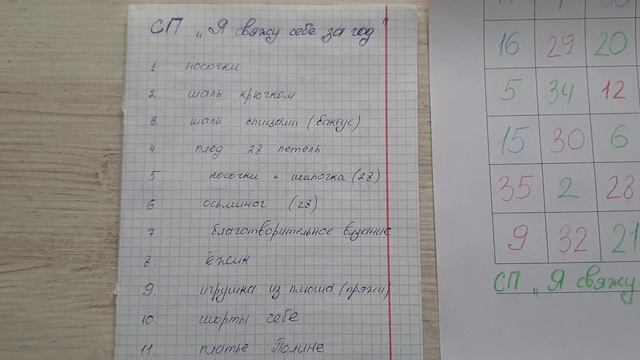 СП „Я свяжу себе за год"
1. носочки
2. шаль крючком
3. шаль спицами (бактус)
4. плед 28 петель
5. носочки + шапочка (28)
6. осьминог (28)
7. благотворительное вязание
8. ёжик
9. игрушка из плюша (пряжи)
10. шорты себе
11. платье Полине
16 29 20
5 34 12
15 30 6
35 2 28
9 32 21
СП „Я свяжу